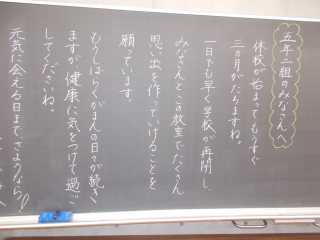 五年二組のみなさんへ
休校が始まってもうすぐ
三ヵ月がたちますね。
一日でも早く学校が再開し、
みなさんとこの教室でたくさん
思い出を作っていけることを
願っています。
もうしばらくがまんの日々が続き
ますが、健康に気をつけて過ご
してくださいね。
元気に会える日まで、さようなら！